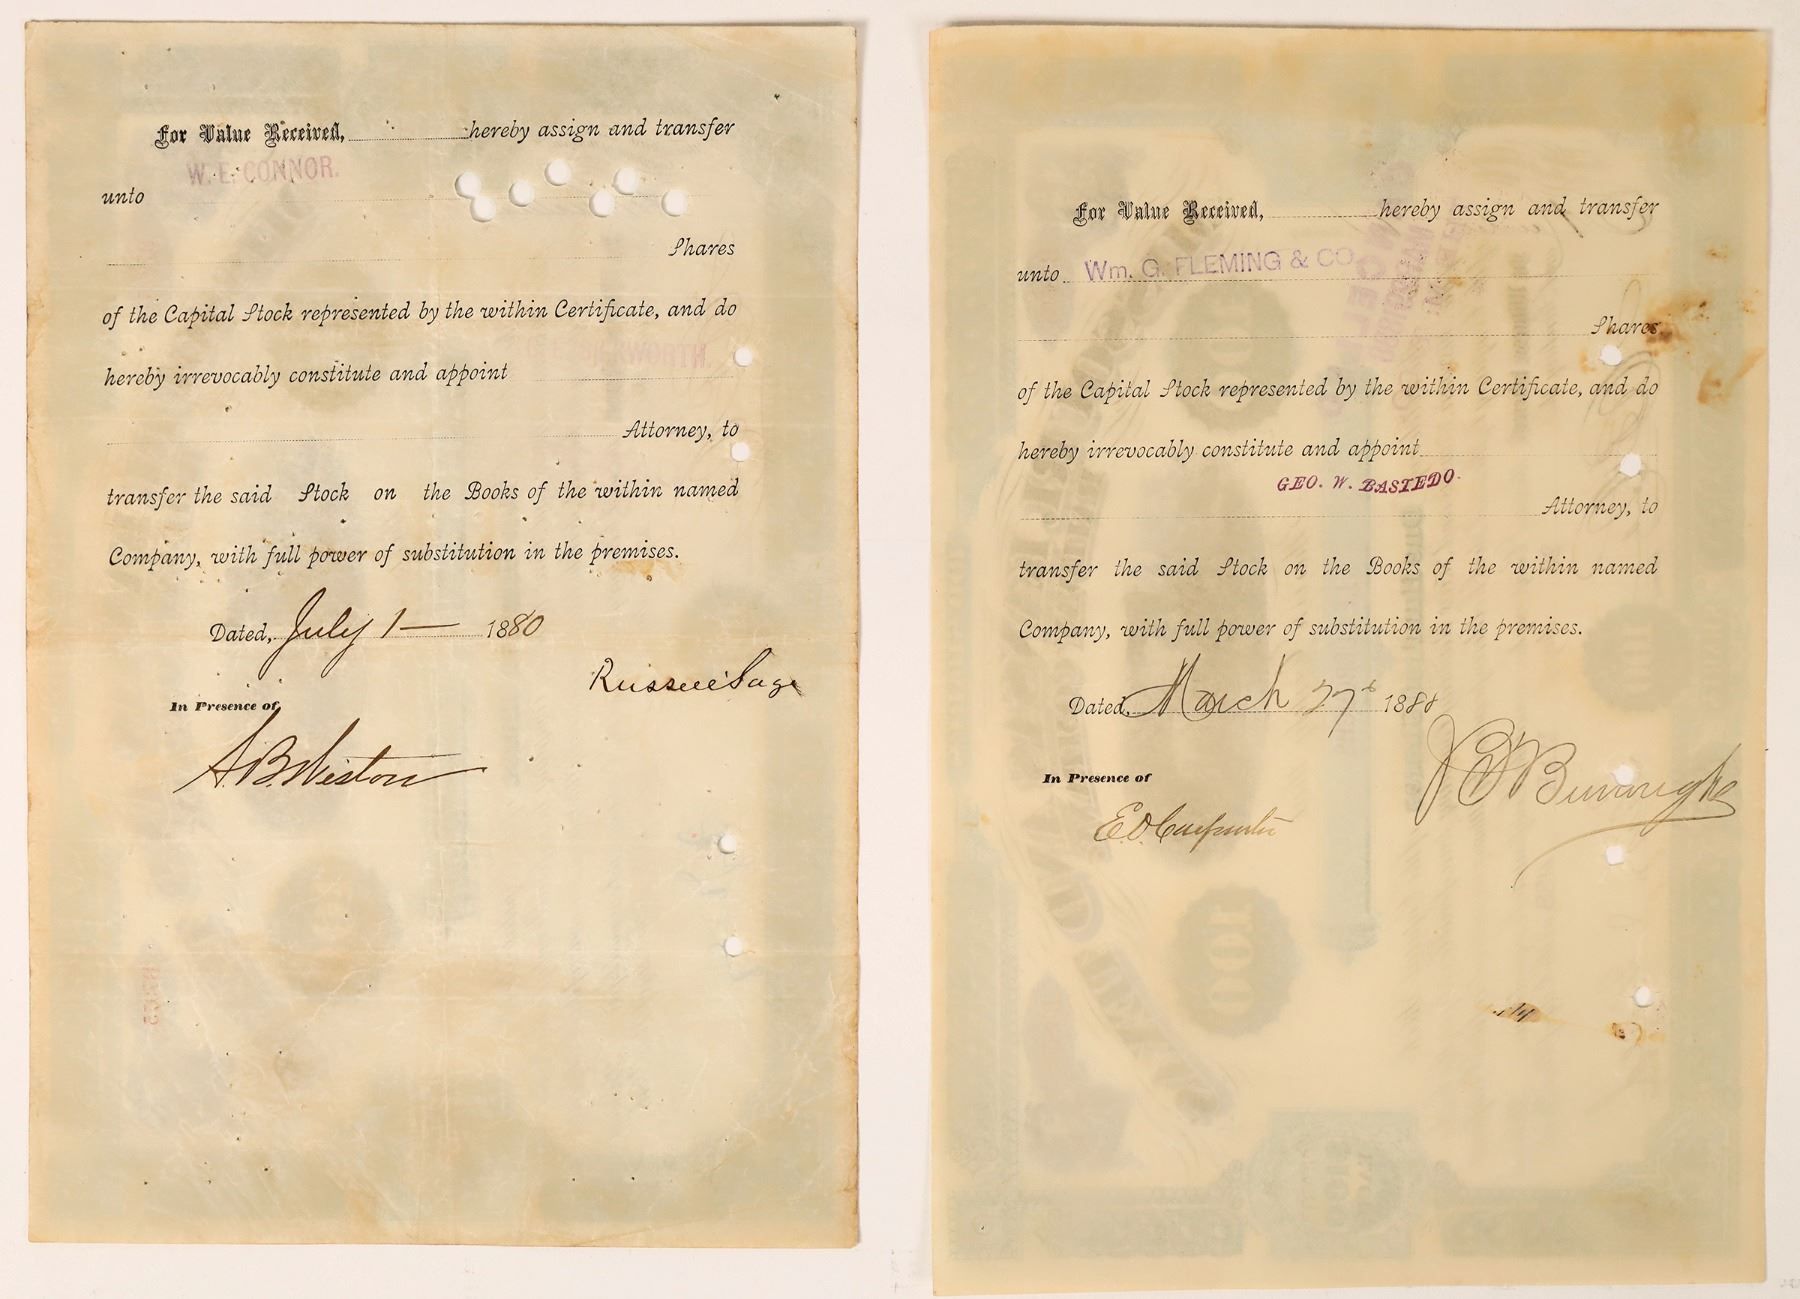 For Value Received, hereby assign and transfer
W. E. CONNOR.
unto
Shares
of the Capital Stock represented by the within Certificate, and do
hereby irrevocably constitute and appoint
Attorney, to
transfer the said Stock on the Books of the within named
Company, with full power of substitution in the premises.
Dated, July 1 — 1880
Russell Sage
In Presence of
A.B. Weston
For Value Received, hereby assign and transfer
unto Wm. G. FLEMING & CO
Shares
of the Capital Stock represented by the within Certificate, and do
hereby irrevocably constitute and appoint
GEO. W. BASTEDO.
Attorney, to
transfer the said Stock on the Books of the within named
Company, with full power of substitution in the premises.
Dated, March 27 188
In Presence of
E.O. Carpenter
100